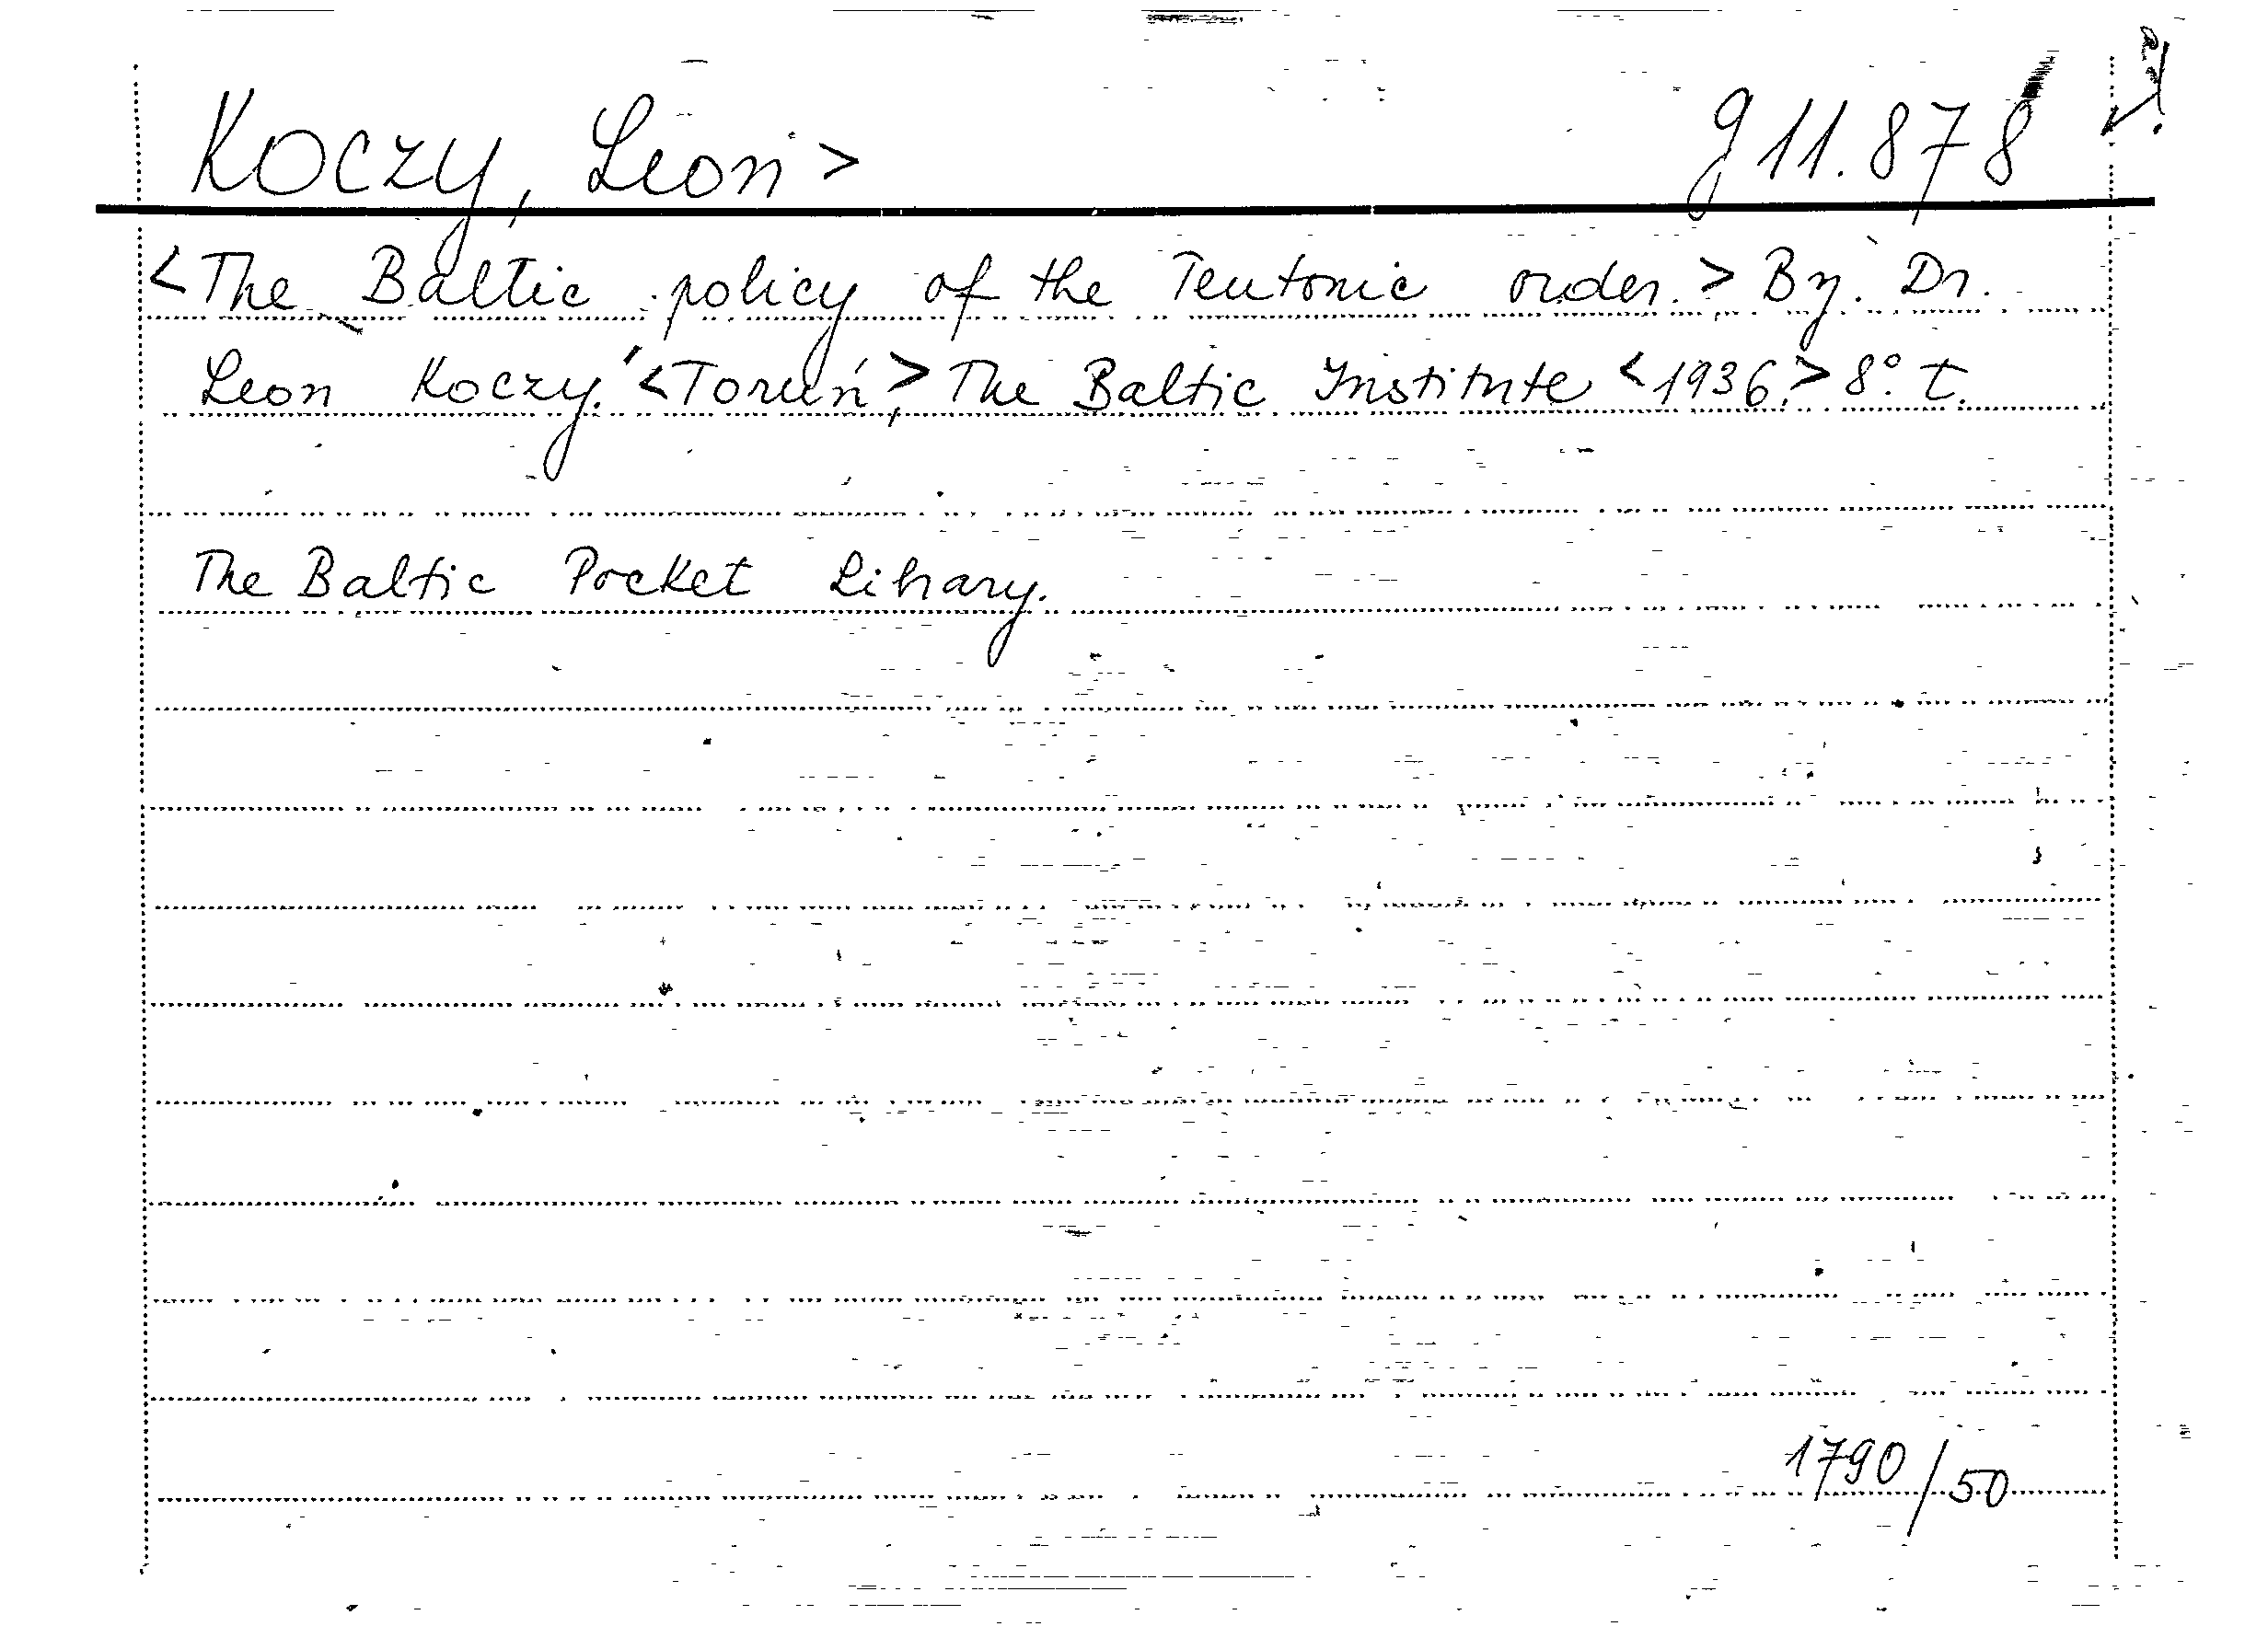 Koczy, Leon > g 11.878
<The Baltic policy of the Teutonic order.> By. Dr.
Leon Koczy. <Toruń,> The Baltic Institute <1936.> 8° t.
The Baltic Pocket Library.
1790/50